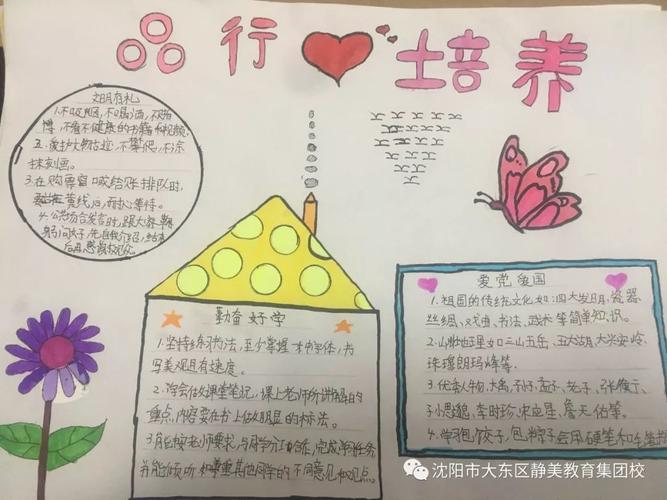 品行 培养
文明有礼
1.不吸烟,不喝酒,不赌
博,不看不健康的书籍和视频,
2.爱护文物古迹,不攀爬,不涂
抹刻画。
3.在购票窗口或给账排队时,
黄线后,耐心等待。
4.公共场合发言时,跟大家鞠
躬问好,先自我介绍,结束
后再感谢观众
勤奋好学
1.坚持练习书法,至少掌握一本书字体,书
写美观且有速度。
2.学会做课堂笔记,课上老师所讲解的
重点内容要在书上做明显的标注。
3.能按老师要求,与同学分工合作,完成学习任务
并能倾听,如尊重其他同学的不同意见和观点
爱党爱国
1.祖国的传统文化如:四大发明,瓷器
丝绸、戏曲、书法、武术等简单知识。
2.山川地理如三山五岳、五大湖、大兴安岭、
珠穆朗玛峰等。
3.优秀人物,大禹、孔子、孟子、老子、张衡、
子思、李时珍、宋应星、詹天佑等。
4.学习包饺子,包粽子会用硬笔和
沈阳市大东区静美教育集团校